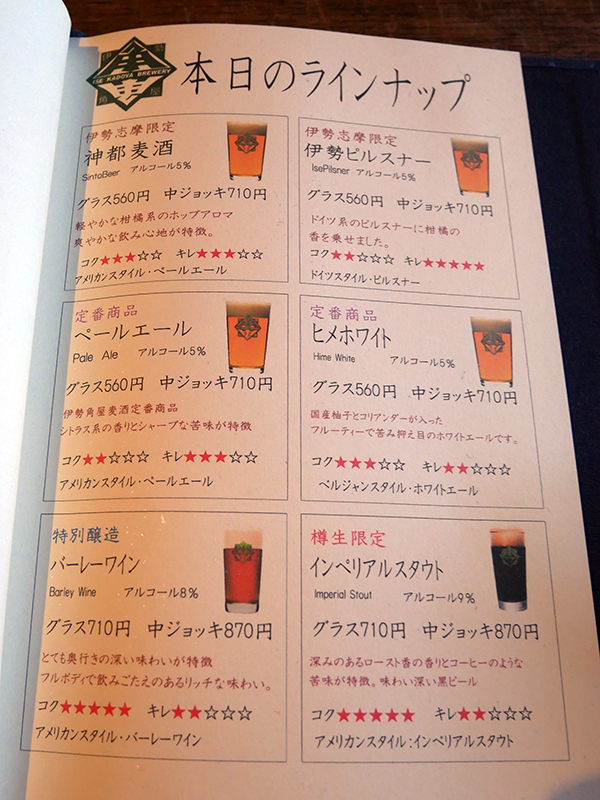 伊勢
ISE KADOYA BREWERY
角屋
本日のラインナップ
伊勢志摩限定
神都麦酒
SintoBeer アルコール5%
グラス560円 中ジョッキ710円
軽やかな柑橘系のホップアロマ
爽やかな飲み心地が特徴。
コク★★★☆☆ キレ★★★☆☆
アメリカンスタイル・ペールエール
伊勢志摩限定
伊勢ピルスナー
IsePilsner アルコール5%
グラス560円 中ジョッキ710円
ドイツ系のピルスナーに柑橘の
香を乗せました。
コク★★☆☆☆ キレ★★★★★
ドイツスタイル・ピルスナー
定番商品
ペールエール
Pale Ale アルコール5%
グラス560円 中ジョッキ710円
伊勢角屋麦酒定番商品
シトラス系の香りとシャープな苦味が特徴
コク★★☆☆☆ キレ★★★☆☆
アメリカンスタイル・ペールエール
定番商品
ヒメホワイト
Hime White アルコール5%
グラス560円 中ジョッキ710円
国産柚子とコリアンダーが入った
フルーティーで苦み抑え目のホワイトエールです。
コク★★★☆☆ キレ★★☆☆☆
ベルジャンスタイル・ホワイトエール
特別醸造
バーレーワイン
Barley Wine アルコール8%
グラス710円 中ジョッキ870円
とても奥行きの深い味わいが特徴
フルボディで飲みごたえのあるリッチな味わい。
コク★★★★★ キレ★★☆☆☆
アメリカンスタイル・バーレーワイン
樽生限定
インペリアルスタウト
Imperial Stout アルコール9%
グラス710円 中ジョッキ870円
深みのあるロースト香の香りとコーヒーのような
苦味が特徴。味わい深い黒ビール
コク★★★★★ キレ★★☆☆☆
アメリカスタイル:インペリアルスタウト